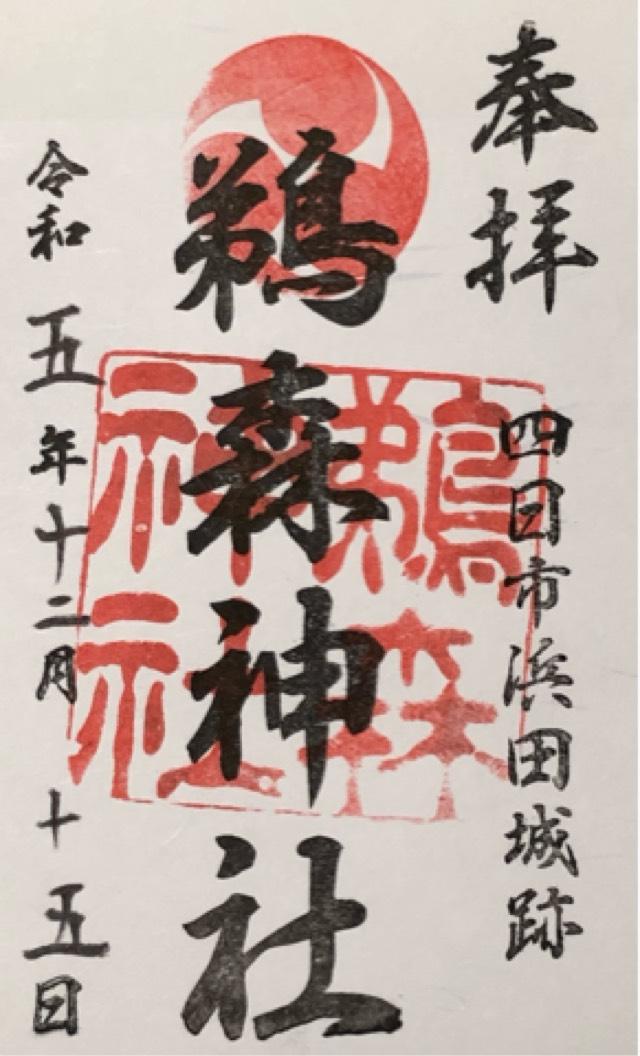 奉拝
四日市浜田城跡
鵜森神社
鵜森神社
令和五年十二月十五日